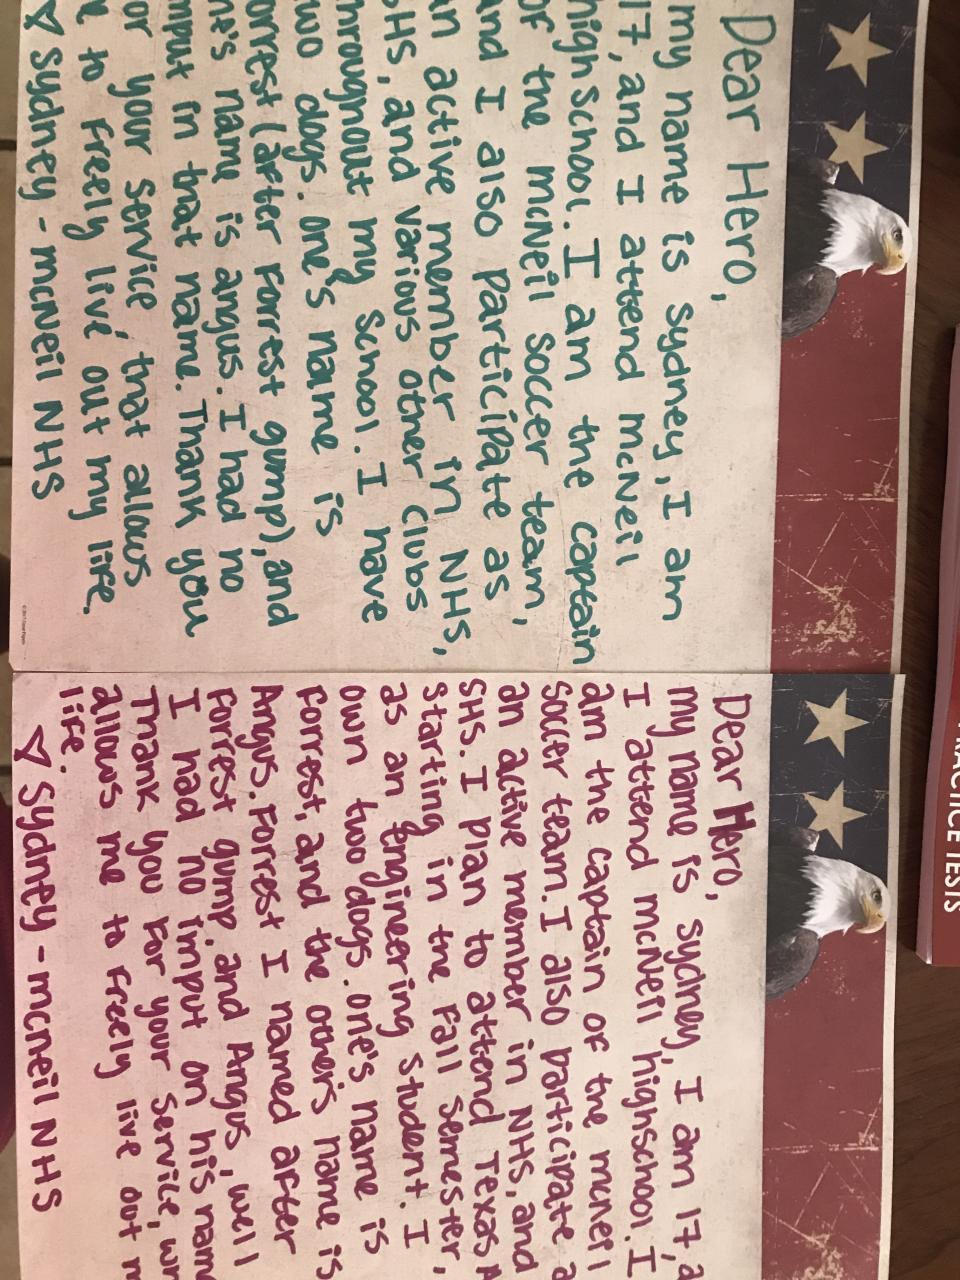 Dear Hero,
my name is Sydney, I am
17, and I attend mcNeil
high school. I am the captain
of the mcNeil soccer team,
and I also participate as
an active member in NHS,
SHS, and various other clubs
throughout my school. I have
two dogs. one's name is
Forrest (after Forrest gump), and
one's name is angus. I had no
imput in that name. Thank you
for your service, that allows
me to freely live out my life.
♡ Sydney - mcNeil NHS
Dear Hero,
my name is sydney, I am 17, a
I attend mcNeil highschool. I
am the captain of the mcNeil
soccer team. I also participate a
an active member in NHS, and
SHS. I plan to attend Texas A
starting in the Fall semester,
as an Engineering student. I
own two dogs. one's name is
Forrest, and the others name is
Angus. Forrest I named after
Forrest gump. and Angus, well
I had no imput on his nam
Thank you For your service, wh
allows me to Freely live out m
life.
♡ Sydney - mcneil NHS
PRACTICE TESTS